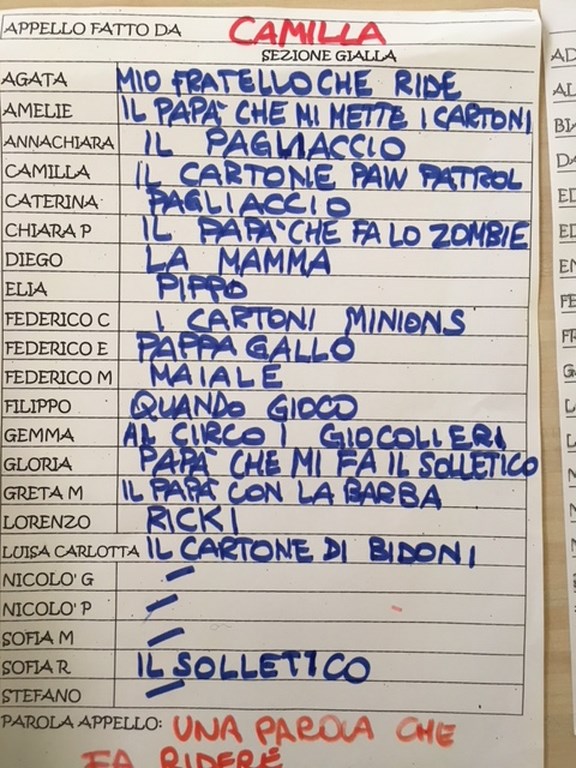 APPELLO FATTO DA CAMILLA
SEZIONE GIALLA
AGATA MIO FRATELLO CHE RIDE
AMELIE IL PAPÀ CHE MI METTE I CARTONI
ANNACHIARA IL PAGLIACCIO
CAMILLA IL CARTONE PAW PATROL
CATERINA PAGLIACCIO
CHIARA P IL PAPÀ CHE FA LO ZOMBIE
DIEGO LA MAMMA
ELIA PIPPO
FEDERICO C I CARTONI MINIONS
FEDERICO E PAPPAGALLO
FEDERICO M MAIALE
FILIPPO QUANDO GIOCO
GEMMA AL CIRCO I GIOCOLLIERI
GLORIA PAPÀ CHE MI FA IL SOLLETICO
GRETA M IL PAPÀ CON LA BARBA
LORENZO RICKI
LUISA CARLOTTA IL CARTONE DI BIDONI
NICOLO' G /
NICOLO' P /
SOFIA M /
SOFIA R IL SOLLETICO
STEFANO /
PAROLA APPELLO: UNA PAROLA CHE
FA RIDERE